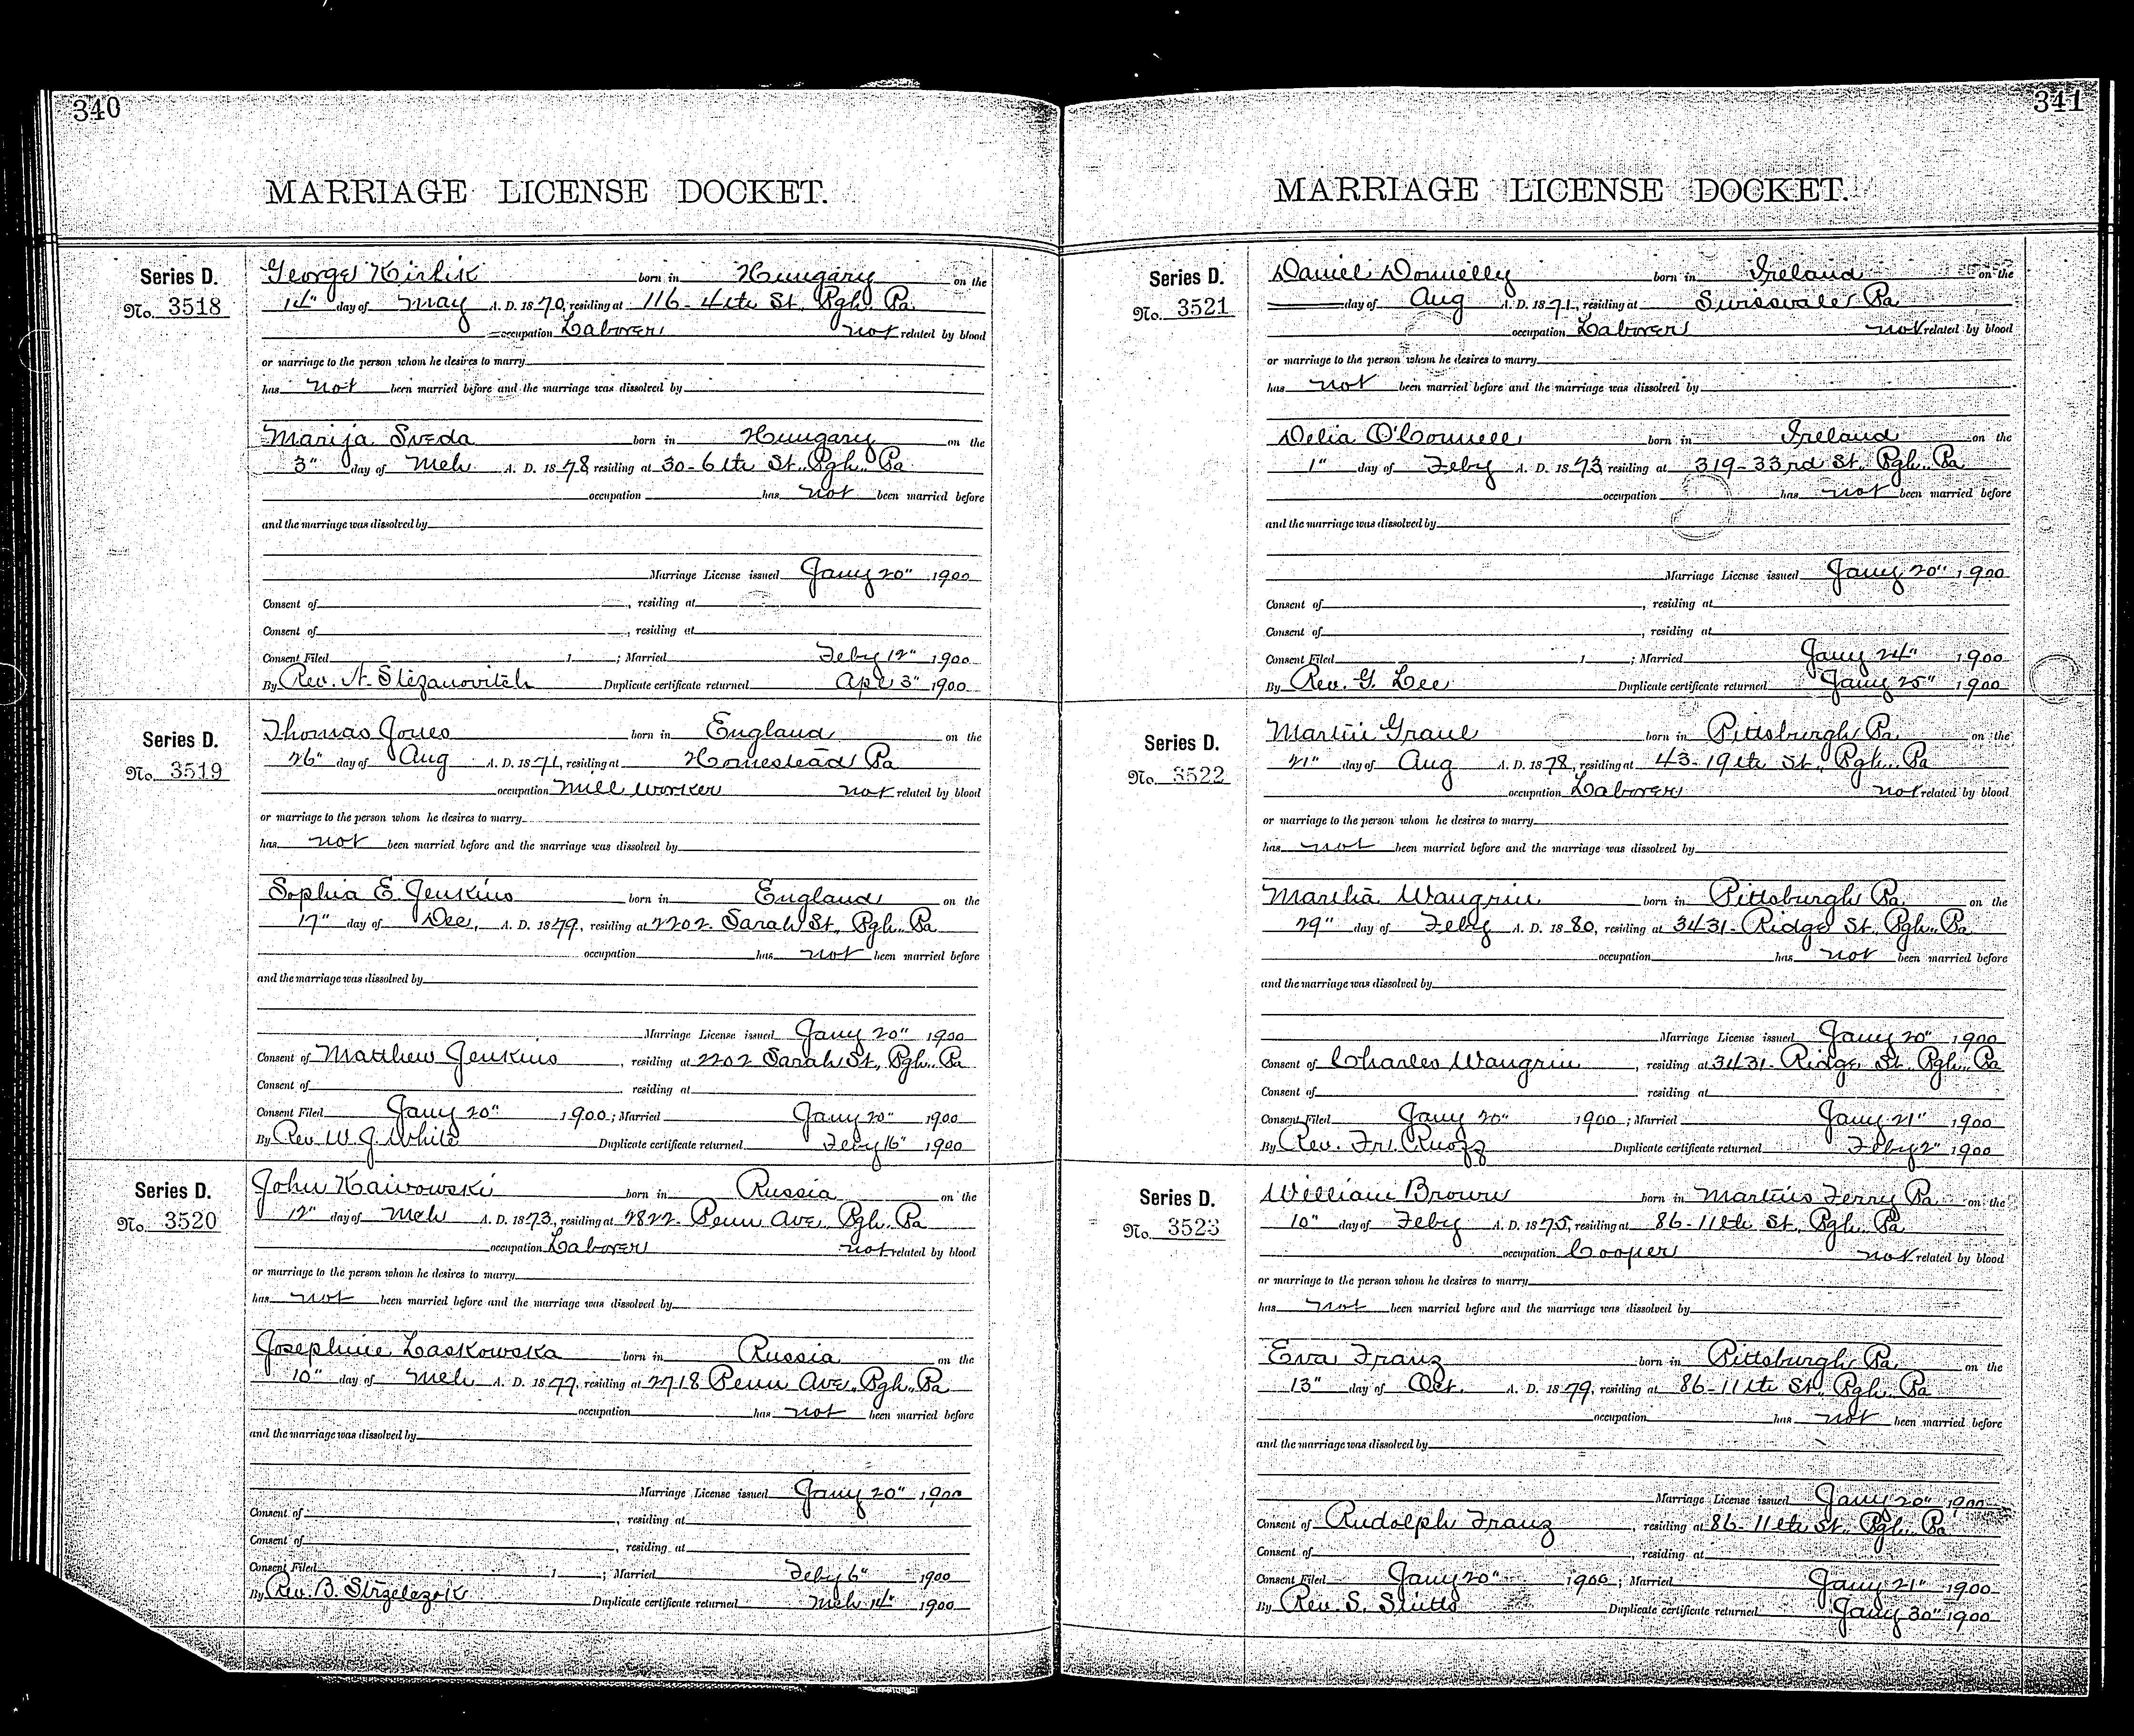 340
MARRIAGE LICENSE DOCKET.
Series D.
No. 3518
George Kirlik born in Hungary on the
14" day of May A. D. 1870, residing at 116-4th St. Pgh. Pa
occupation Laborer not related by blood
or marriage to the person whom he desires to marry
has not been married before and the marriage was dissolved by
Marija Sveda born in Hungary on the
3" day of Mch A. D. 1878, residing at 30-6th St., Pgh. Pa
occupation has not been married before
and the marriage was dissolved by
Marriage License issued Jany 20" 1900
Consent of , residing at
Consent of , residing at
Consent Filed 1 ; Married Feby 12" 1900
By Rev. A. Slezanovitch Duplicate certificate returned Apr 3" 1900
Series D.
No. 3519
Thomas Jones born in England on the
26" day of Aug A. D. 1871, residing at Homestead Pa
occupation Mill worker not related by blood
or marriage to the person whom he desires to marry
has not been married before and the marriage was dissolved by
Sophia E. Jenkins born in England on the
17" day of Dec. A. D. 1879, residing at 2202 Sarah St., Pgh. Pa
occupation has not been married before
and the marriage was dissolved by
Marriage License issued Jany 20" 1900
Consent of Matthew Jenkins , residing at 2202 Sarah St., Pgh. Pa
Consent of , residing at
Consent Filed Jany 20" 1900 ; Married Jany 20" 1900
By Rev. W. J. White Duplicate certificate returned Feby 16" 1900
Series D.
No. 3520
John Kaivowski born in Russia on the
12" day of Mch A. D. 1873, residing at 2822 Penn Ave. Pgh. Pa
occupation Laborer not related by blood
or marriage to the person whom he desires to marry
has not been married before and the marriage was dissolved by
Josephine Laskowska born in Russia on the
10" day of Mch A. D. 1877, residing at 2718 Penn Ave. Pgh. Pa
occupation has not been married before
and the marriage was dissolved by
Marriage License issued Jany 20" 1900
Consent of , residing at
Consent of , residing at
Consent Filed 1 ; Married Feby 6" 1900
By Rev. B. Strzelczok Duplicate certificate returned Mch 14" 1900
341
MARRIAGE LICENSE DOCKET.
Series D.
No. 3521
Daniel Donnelly born in Ireland on the
day of Aug A. D. 1871, residing at Swissvale Pa
occupation Laborer not related by blood
or marriage to the person whom he desires to marry
has not been married before and the marriage was dissolved by
Delia O'Connell born in Ireland on the
1" day of Feby A. D. 1873, residing at 319-33rd St., Pgh. Pa
occupation has not been married before
and the marriage was dissolved by
Marriage License issued Jany 20" 1900
Consent of , residing at
Consent of , residing at
Consent Filed 1 ; Married Jany 24" 1900
By Rev. G. Lee Duplicate certificate returned Jany 25" 1900
Series D.
No. 3522
Martin Graul born in Pittsburgh Pa on the
21" day of Aug A. D. 1878, residing at 43-19th St., Pgh. Pa
occupation Laborer not related by blood
or marriage to the person whom he desires to marry
has not been married before and the marriage was dissolved by
Martha Wangrin born in Pittsburgh Pa. on the
29" day of Feby A. D. 1880, residing at 3431-Ridge St., Pgh. Pa
occupation has not been married before
and the marriage was dissolved by
Marriage License issued Jany 20" 1900
Consent of Charles Wangrin , residing at 3431-Ridge St. Pgh. Pa
Consent of , residing at
Consent Filed Jany 20" 1900 ; Married Jany 21" 1900
By Rev. Fr. Ruoff Duplicate certificate returned Feby 2" 1900
Series D.
No. 3523
William Brown born in Martins Ferry Pa on the
10" day of Feby A. D. 1875, residing at 86-11th St., Pgh. Pa
occupation Cooper not related by blood
or marriage to the person whom he desires to marry
has not been married before and the marriage was dissolved by
Eva Franz born in Pittsburgh Pa on the
13" day of Oct. A. D. 1879, residing at 86-11th St., Pgh. Pa
occupation has not been married before
and the marriage was dissolved by
Marriage License issued Jany 20" 1900
Consent of Rudolph Franz , residing at 86-11th St. Pgh. Pa
Consent of , residing at
Consent Filed Jany 20" 1900 ; Married Jany 21" 1900
By Rev. S. Stutts Duplicate certificate returned Jany 30" 1900